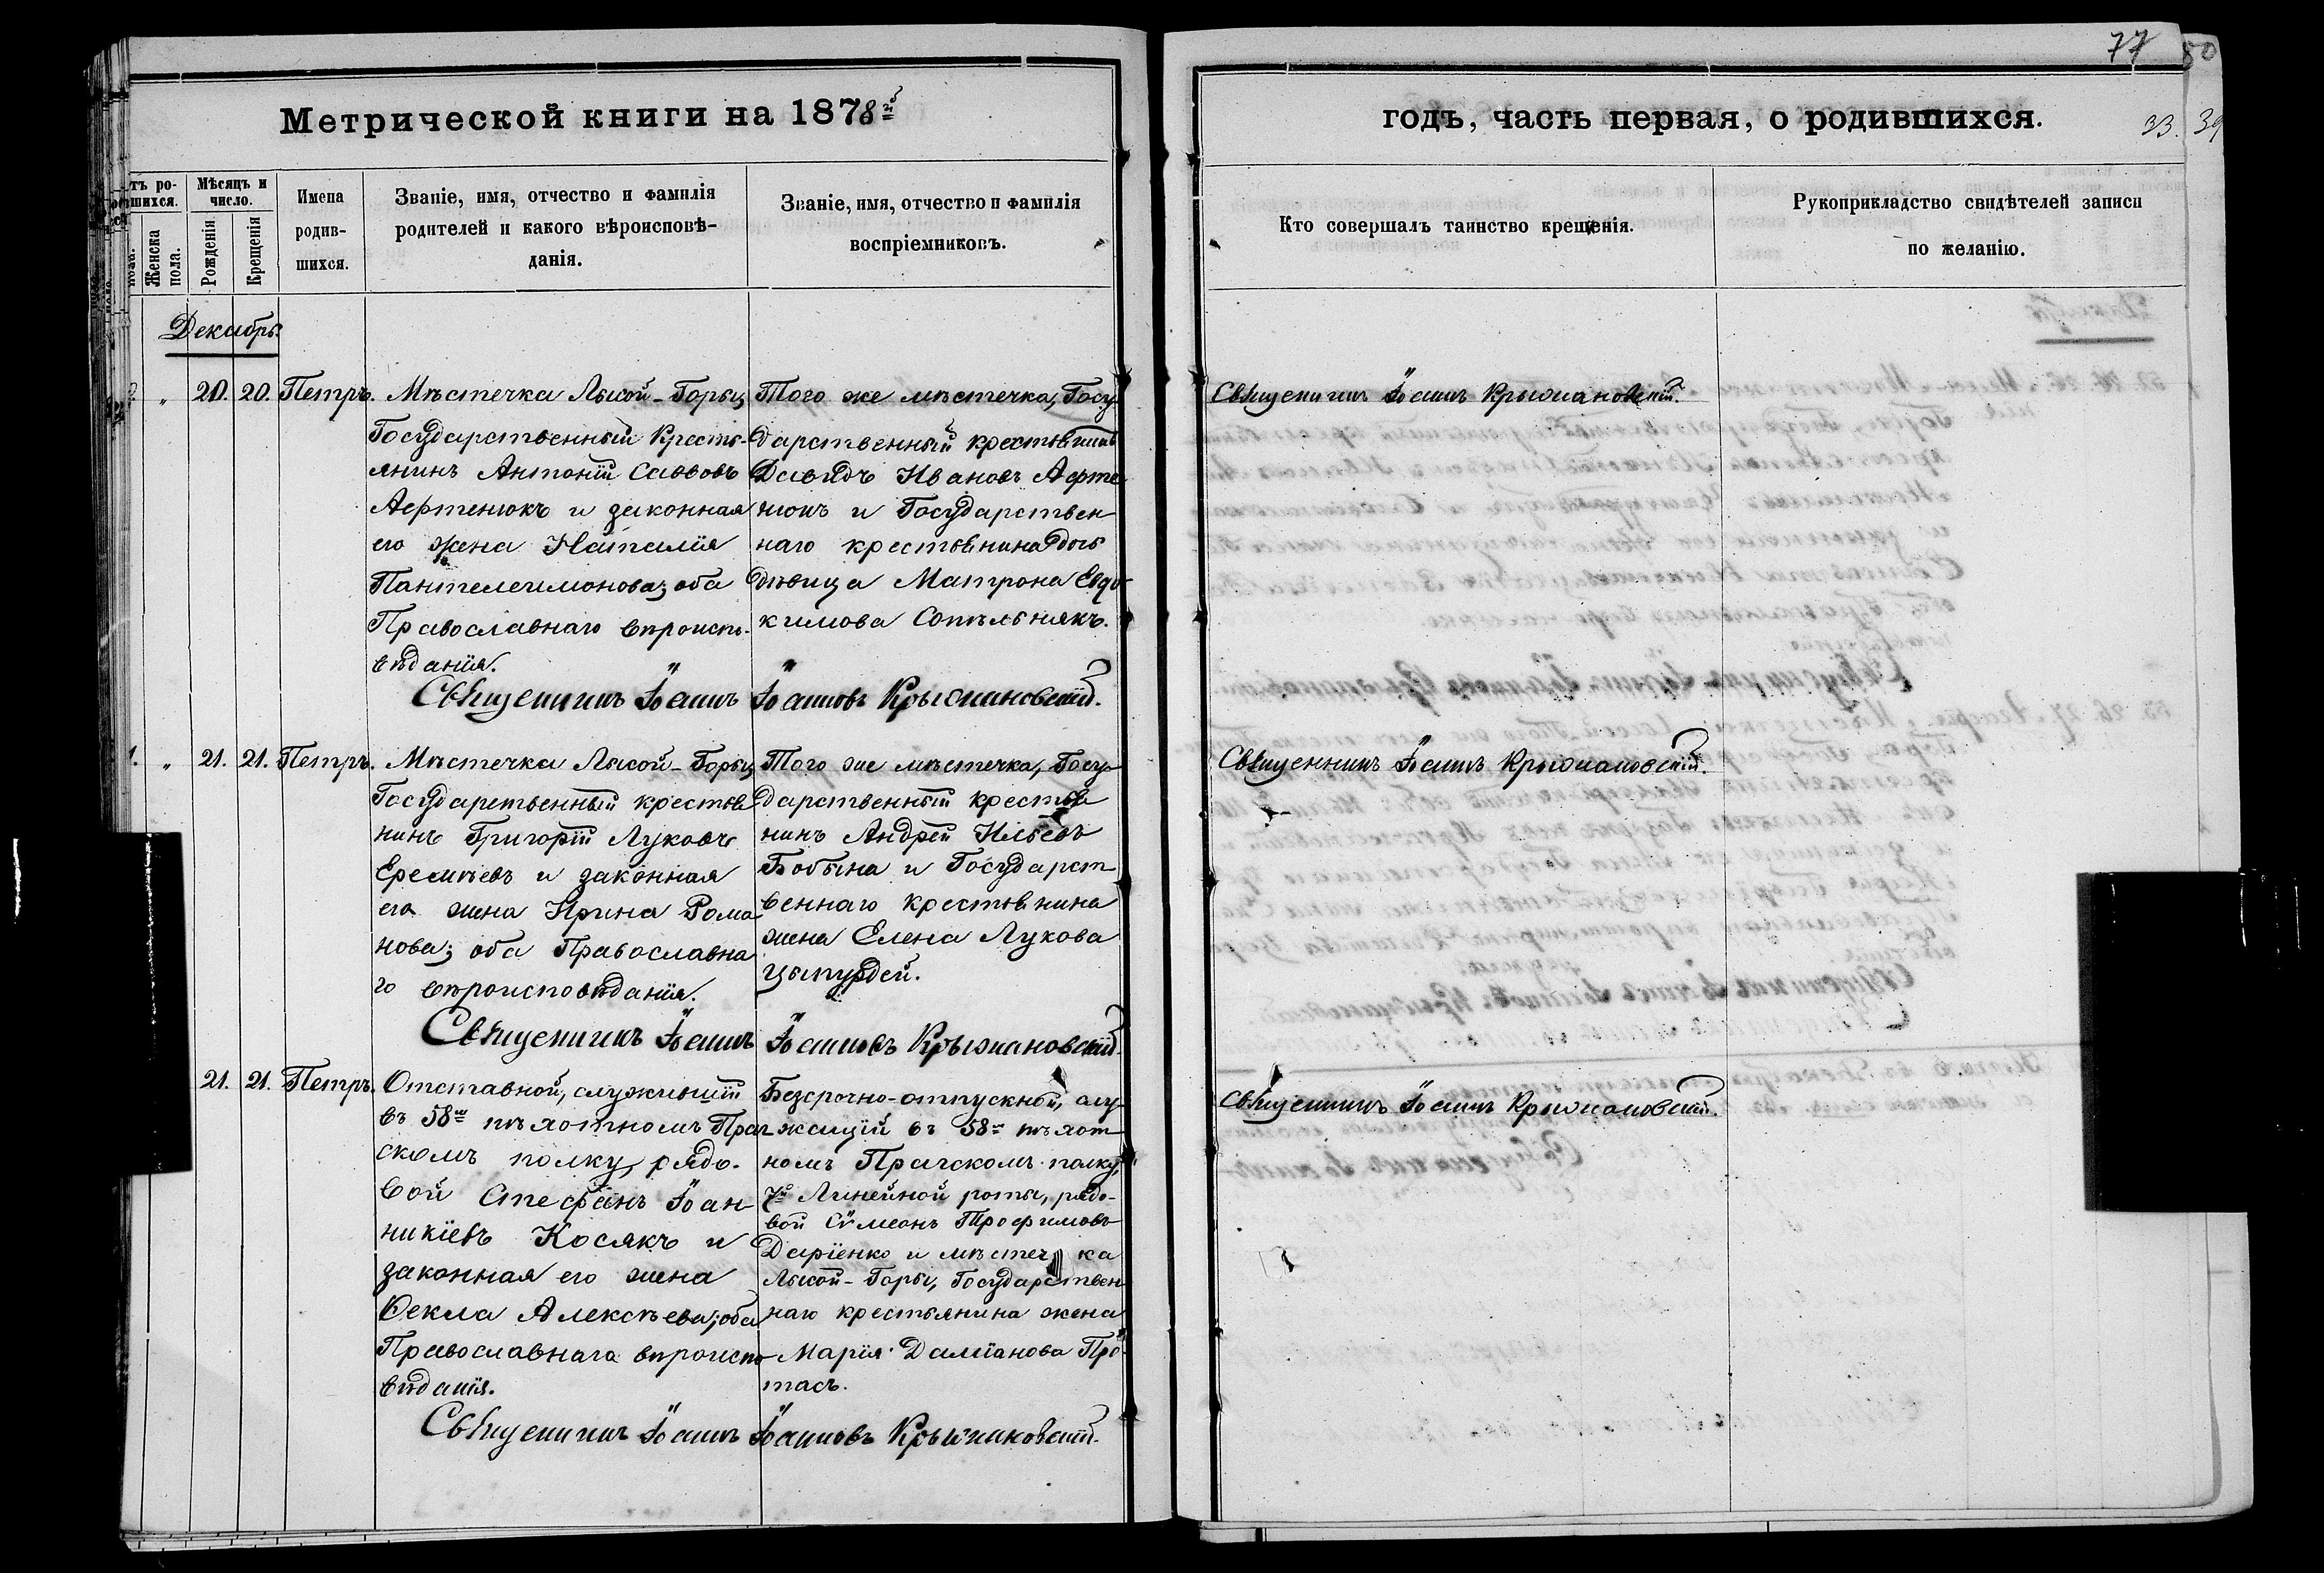 77
80
Метрической книги на 1878й
годъ, часть первая, о родившихся.
33.
39
тъ ро-
шихся.
Женска
пола.
Мѣсяцъ и
число.
Рожденія
Крещенія
Имена
родив-
шихся.
Званіе, имя, отчество и фамилія
родителей и какого вѣроисповѣ-
данія.
Званіе, имя, отчество и фамилія
воспріемниковъ.
Кто совершалъ таинство крещенія.
Рукоприкладство свидѣтелей записи
по желанію.
Декабрь.
„ 20. 20. Петръ.
Мѣстечка Лысой-Горы,
Государственный Кресть-
янинъ Антоній Савовъ
Афтенюкъ и законная
его жена Наталія
Пантелеимонова; оба
Православнаго вѣроиспо-
вѣданія.
Того же мѣстечка, Госу
дарственный крестьянинъ
Давидъ Ивановъ Афте
нюкъ и Государствен
наго крестьянина дочь
дѣвица Матрона Евдо-
кимова Сотельнякъ.
Священникъ Іоаннъ Іоанновъ Крыжановскій.
Священникъ Іоаннъ Крыжановскій.
1. „ 21. 21. Петръ.
Мѣстечка Лысой-Горы,
Государственный крестья
нинъ Григорій Луковъ
Еремѣевъ и законная
его жена Ирина Рома
нова; оба Православна
го вѣроисповѣданія.
Того же мѣстечка, Госу-
дарственный крестья
нинъ Андрей Ильевъ
Бобына и Государст
веннаго крестьянина
жена Елена Лукова
Цыпурдей.
Священникъ Іоаннъ Іоанновъ Крыжановскій.
Священникъ Іоаннъ Крыжановскій.
21. 21. Петръ.
Отставной, служившій
въ 58м пѣхотномъ Праг
скомъ полку, рядо-
вой Стефанъ Іоан
никіевъ Косякъ и
законная его жена
Ѳекла Алексѣева; оба
Православнаго вѣроиспо
вѣданія.
Безсрочно-отпускной, слу
жащій въ 58м пѣхот
номъ Прагскомъ полку,
7й Линейной роты, рядо-
вой Сѵмеонъ Трофимовъ
Даріенко и мѣстечка
Лысой-Горы, Государствен
наго крестьянина жена
Марія Даміанова Про-
тасъ.
Священникъ Іоаннъ Іоанновъ Крыжановскій.
Священникъ Іоаннъ Крыжановскій.